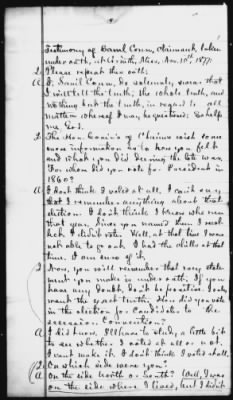 Testimony of Daniel Conn, claimant taken
under oath, at Corinth, Miss, Nov. 10th, 1877.
Q. Please repeat this oath:
A. I, Daniel Conn, do solemnly swear that
I will tell the truth, the whole truth, and
nothing but the truth, in regard to all
matters whereof I may be questioned: So help
me God.
Q. The Hon. Com's of Claims wish some
more information as to how you felt
and what you did during the late war.
For whom did you vote for President in
1860?
A. I don't think I voted at all. I can't say
that I remember anything about that
election. I don't think I know who ran
that year. Since you named them I recol-
lect I didn't vote. Well, at that time I was
not able to go out. I had the chills at that
time. I am sure of it.
Q. Now, you will remember that every state-
ment you make is under oath. If you
have any doubt, don't be positive. I only
want the exact truth. How did you vote
in the election for Candidates to the
secession Convention?
A. I did know. I'll have to study, a little bit
to see whether I voted at all or not.
I can't make it. I don't think I voted at all.
Q. On which side were you?
A. On the side North or South? Well, I was
on the side where I lived, but I didn't